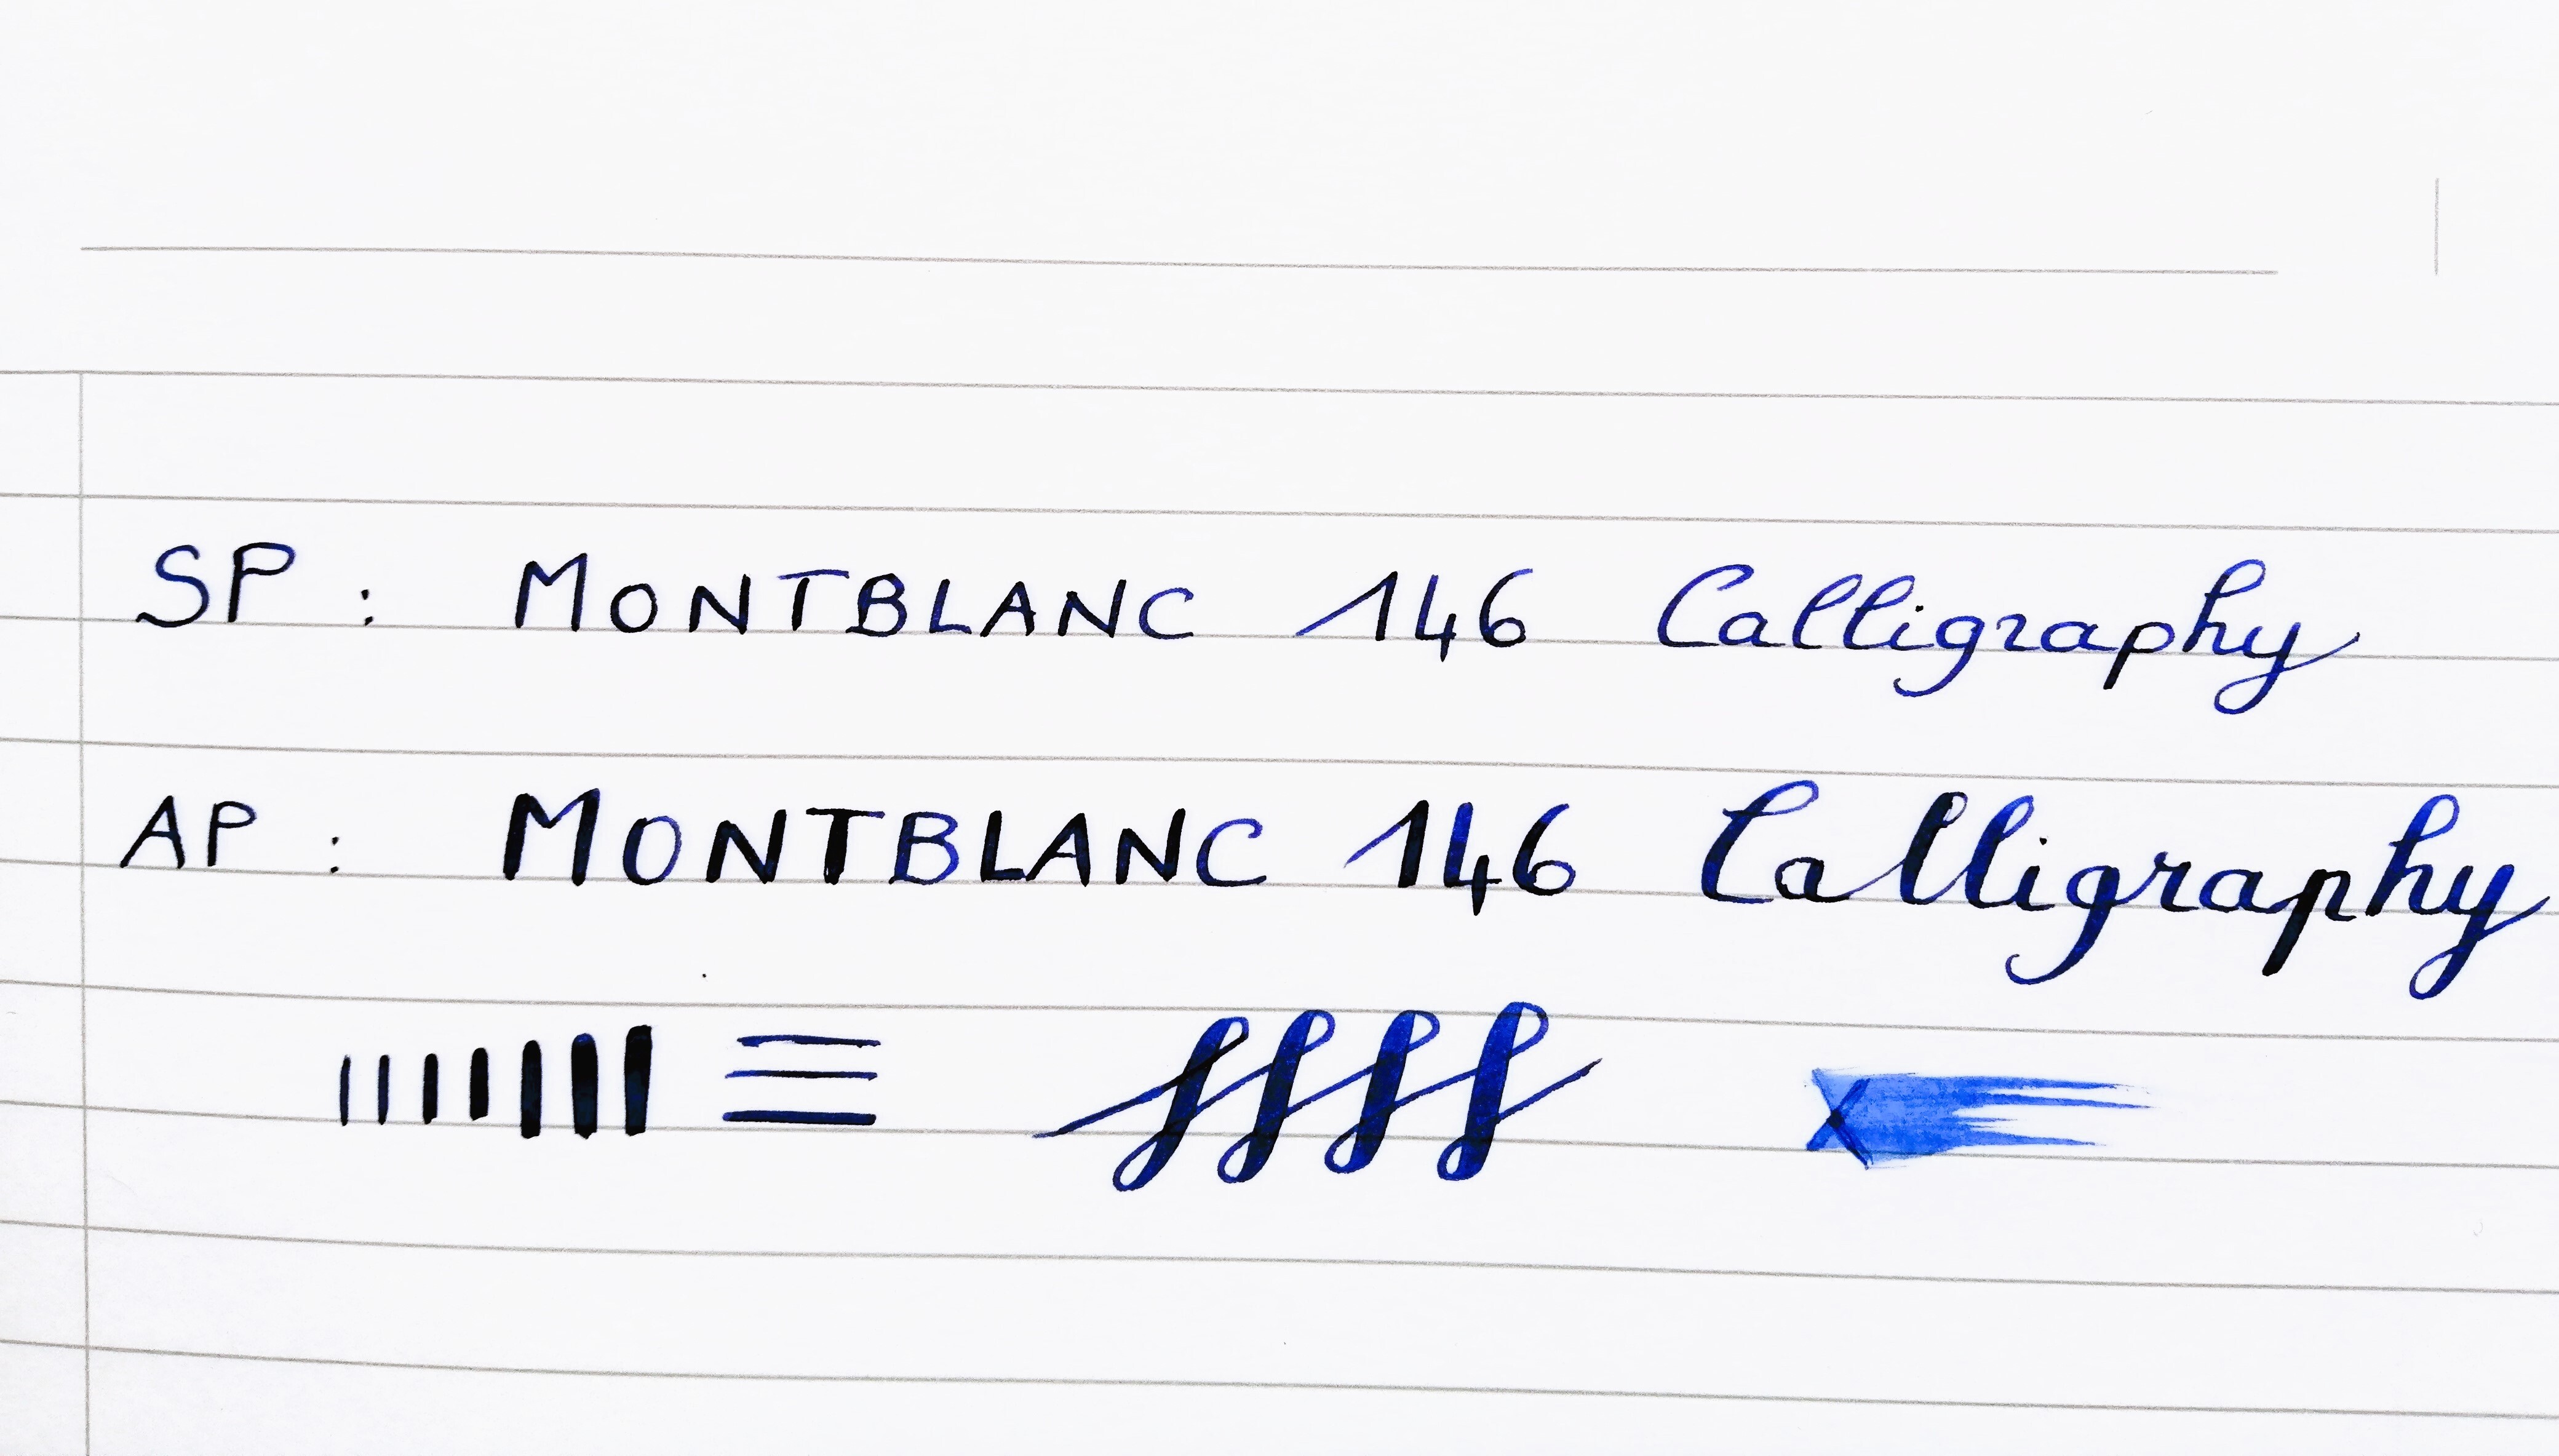 SP : MONTBLANC 146 Calligraphy
AP : MONTBLANC 146 Calligraphy